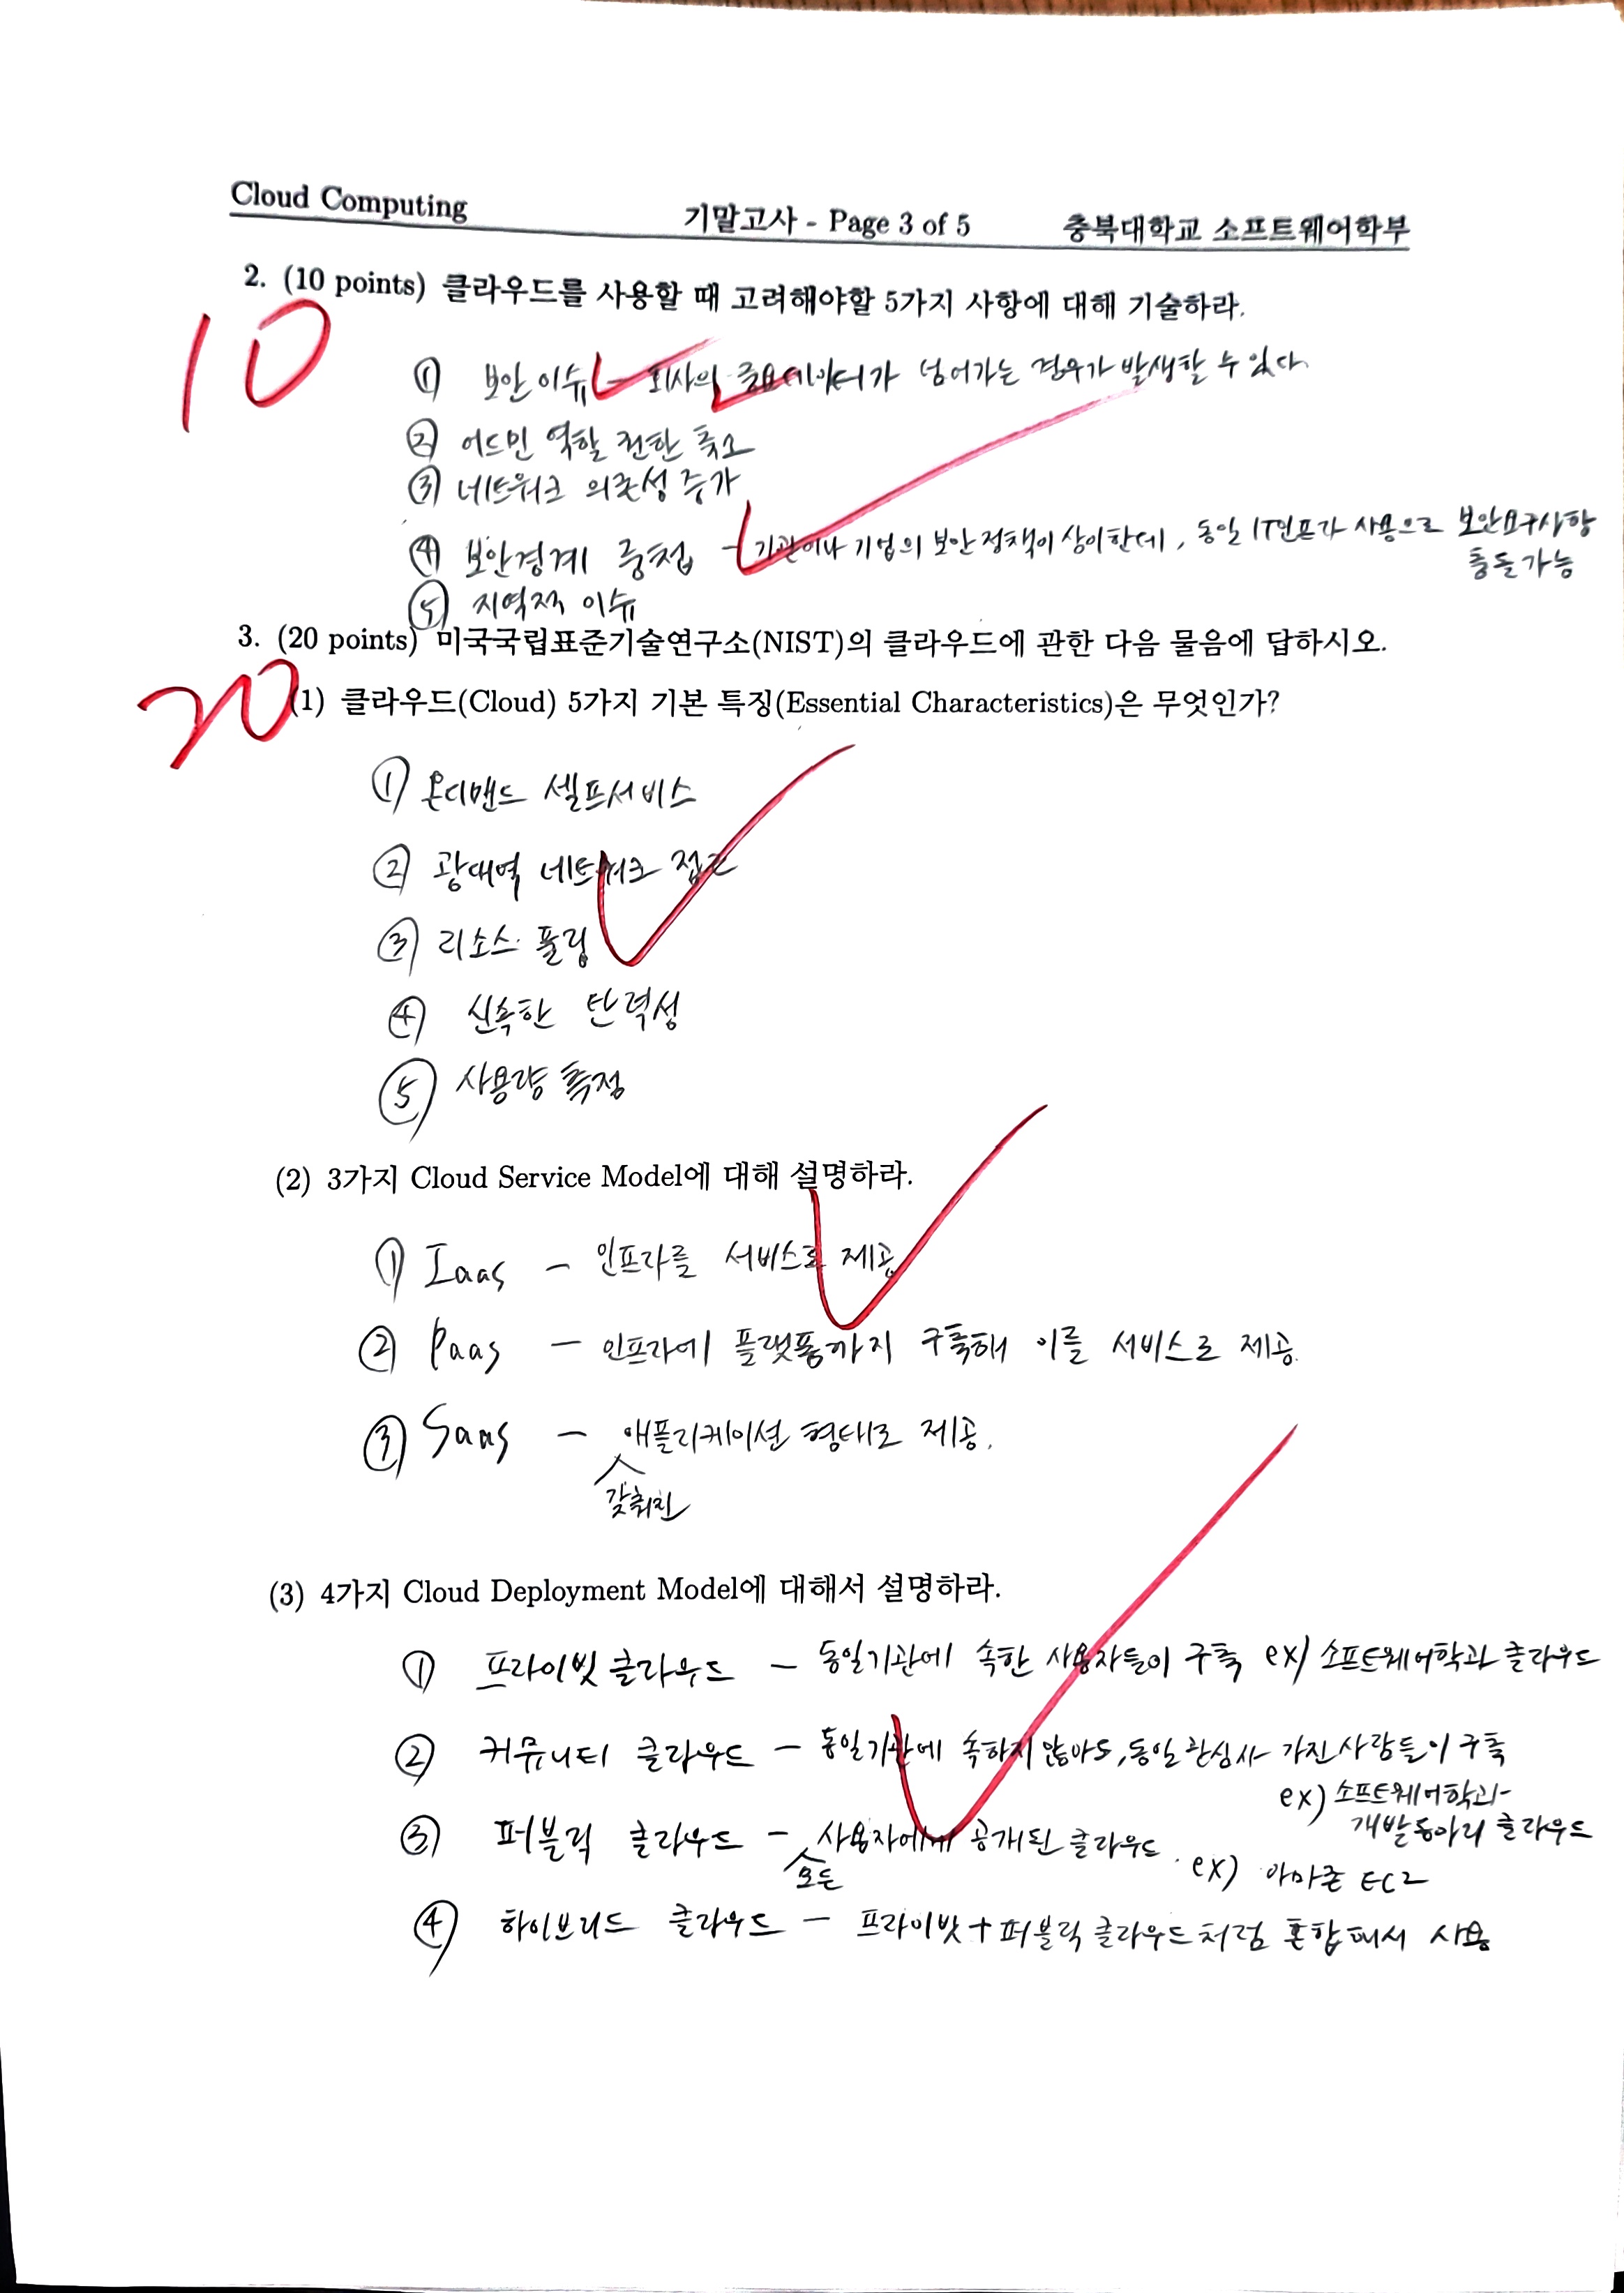 Cloud Computing 기말고사 - Page 3 of 5 충북대학교 소프트웨어학부
2. (10 points) 클라우드를 사용할 때 고려해야할 5가지 사항에 대해 기술하라.
10
① 보안 이슈 - 회사의 중요데이터가 넘어가는 경우가 발생할 수 있다.
② 어드민 역할 권한 축소
③ 네트워크 의존성 증가
④ 보안경계 중첩 - 기관이나 기업의 보안정책이 상이한데, 동일 IT인프라 사용으로 보안요구사항
충돌가능
⑤ 지역적 이슈
3. (20 points) 미국국립표준기술연구소(NIST)의 클라우드에 관한 다음 물음에 답하시오.
20
(1) 클라우드(Cloud) 5가지 기본 특징(Essential Characteristics)은 무엇인가?
① 온디맨드 셀프서비스
② 광대역 네트워크 접근
③ 리소스 풀링
④ 신속한 탄력성
⑤ 사용량 측정
(2) 3가지 Cloud Service Model에 대해 설명하라.
① Iaas - 인프라를 서비스로 제공
② Paas - 인프라에 플랫폼까지 구축해 이를 서비스로 제공.
③ Saas - 애플리케이션 형태로 제공.
갖춰진
(3) 4가지 Cloud Deployment Model에 대해서 설명하라.
① 프라이빗 클라우드 - 동일기관에 속한 사용자들이 구축 ex) 소프트웨어학과 클라우드
② 커뮤니티 클라우드 - 동일기관에 속하지 않아도, 동일 관심사 가진 사람들이 구축
ex) 소프트웨어학과
개발동아리 클라우드
③ 퍼블릭 클라우드 - 사용자에게 공개된 클라우드. ex) 아마존 EC2
모든
④ 하이브리드 클라우드 - 프라이빗 + 퍼블릭 클라우드처럼 혼합해서 사용